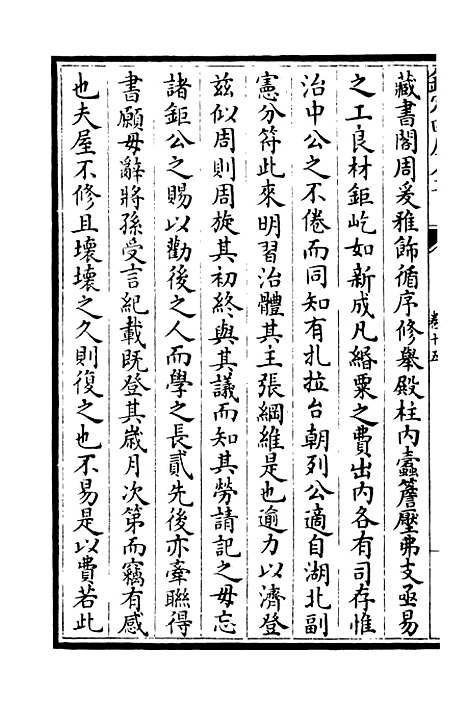 藏書閣周爰雅飾循序修舉殿柱内蠧簷壓弗支亟易
之工良材鉅屹如新成凡緡粟之費出内各有司存惟
治中公之不倦而同知有扎拉台朝列公適自湖北副
憲分符此來明習治體其王張綱維是也逾力以濟登
兹似周則周旋其初終與其議而知其勞請記之毋忘
諸鉅公之賜以勸後之人而學之長貳先後亦牽聯得
書願毋辭將孫受言紀載既登其歲月次第而竊有感
也夫屋不修且壞壞之久則復之也不易是以費若此
卷十五